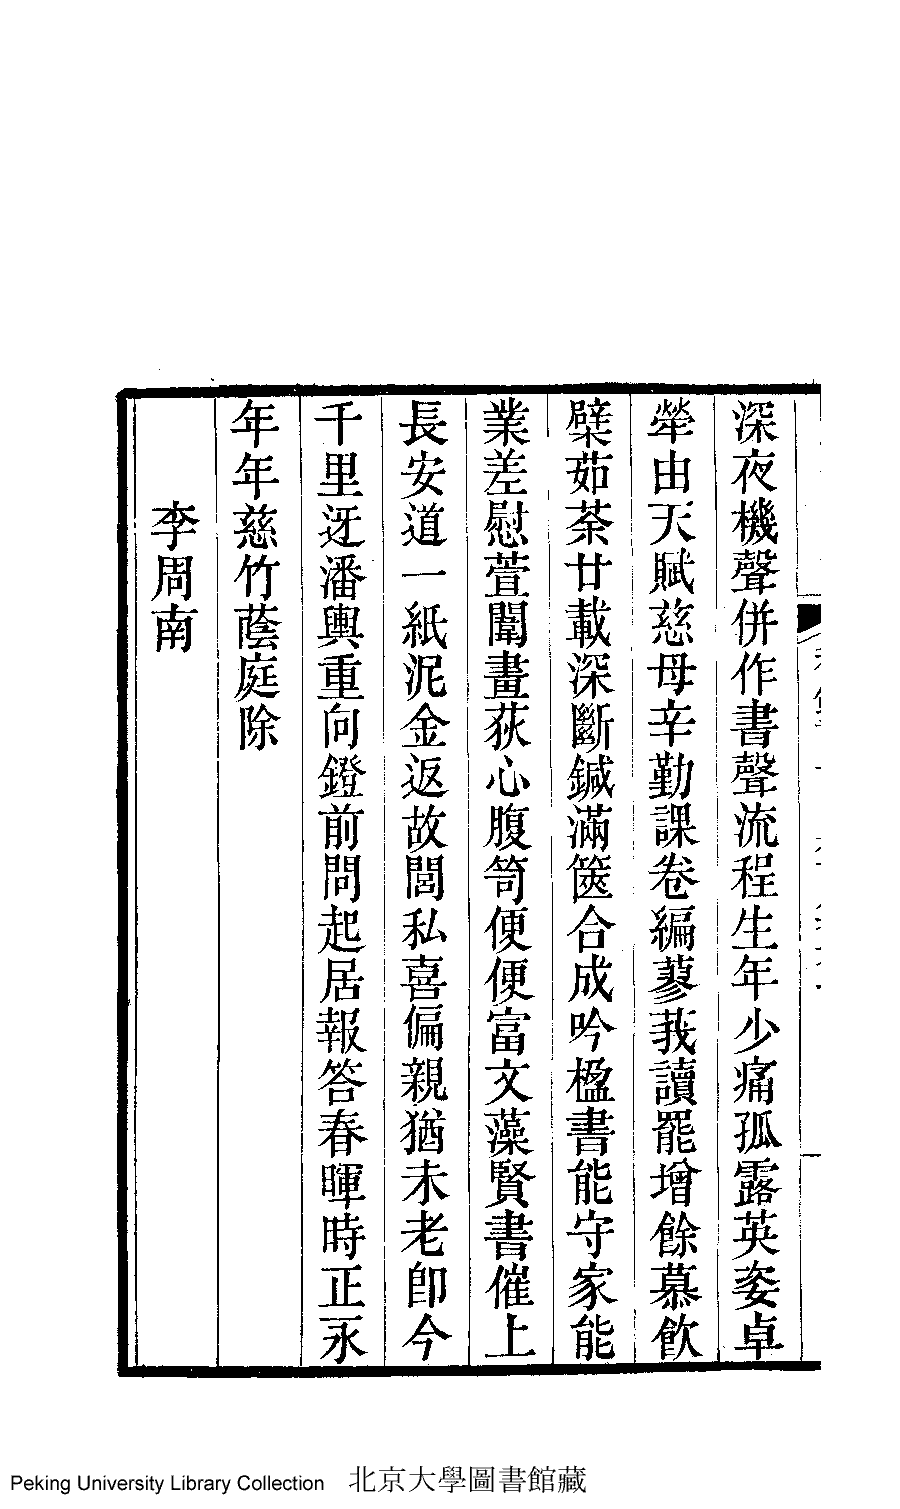 深夜機聲併作書聲流程生年少痛孤露英姿卓
犖由天賦慈母辛勤課卷編蓼莪讀罷增餘慕飲
檗茹荼廿載深斷鍼滿篋合成吟楹書能守家能
業差慰萱闈畫荻心腹笥便便富文藻賢書催上
長安道一紙泥金返故閭私喜偏親猶未老卽今
千里迓潘輿重向鐙前問起居報答春暉時正永
年年慈竹蔭庭除
李周南
Peking University Library Collection 北京大學圖書館藏